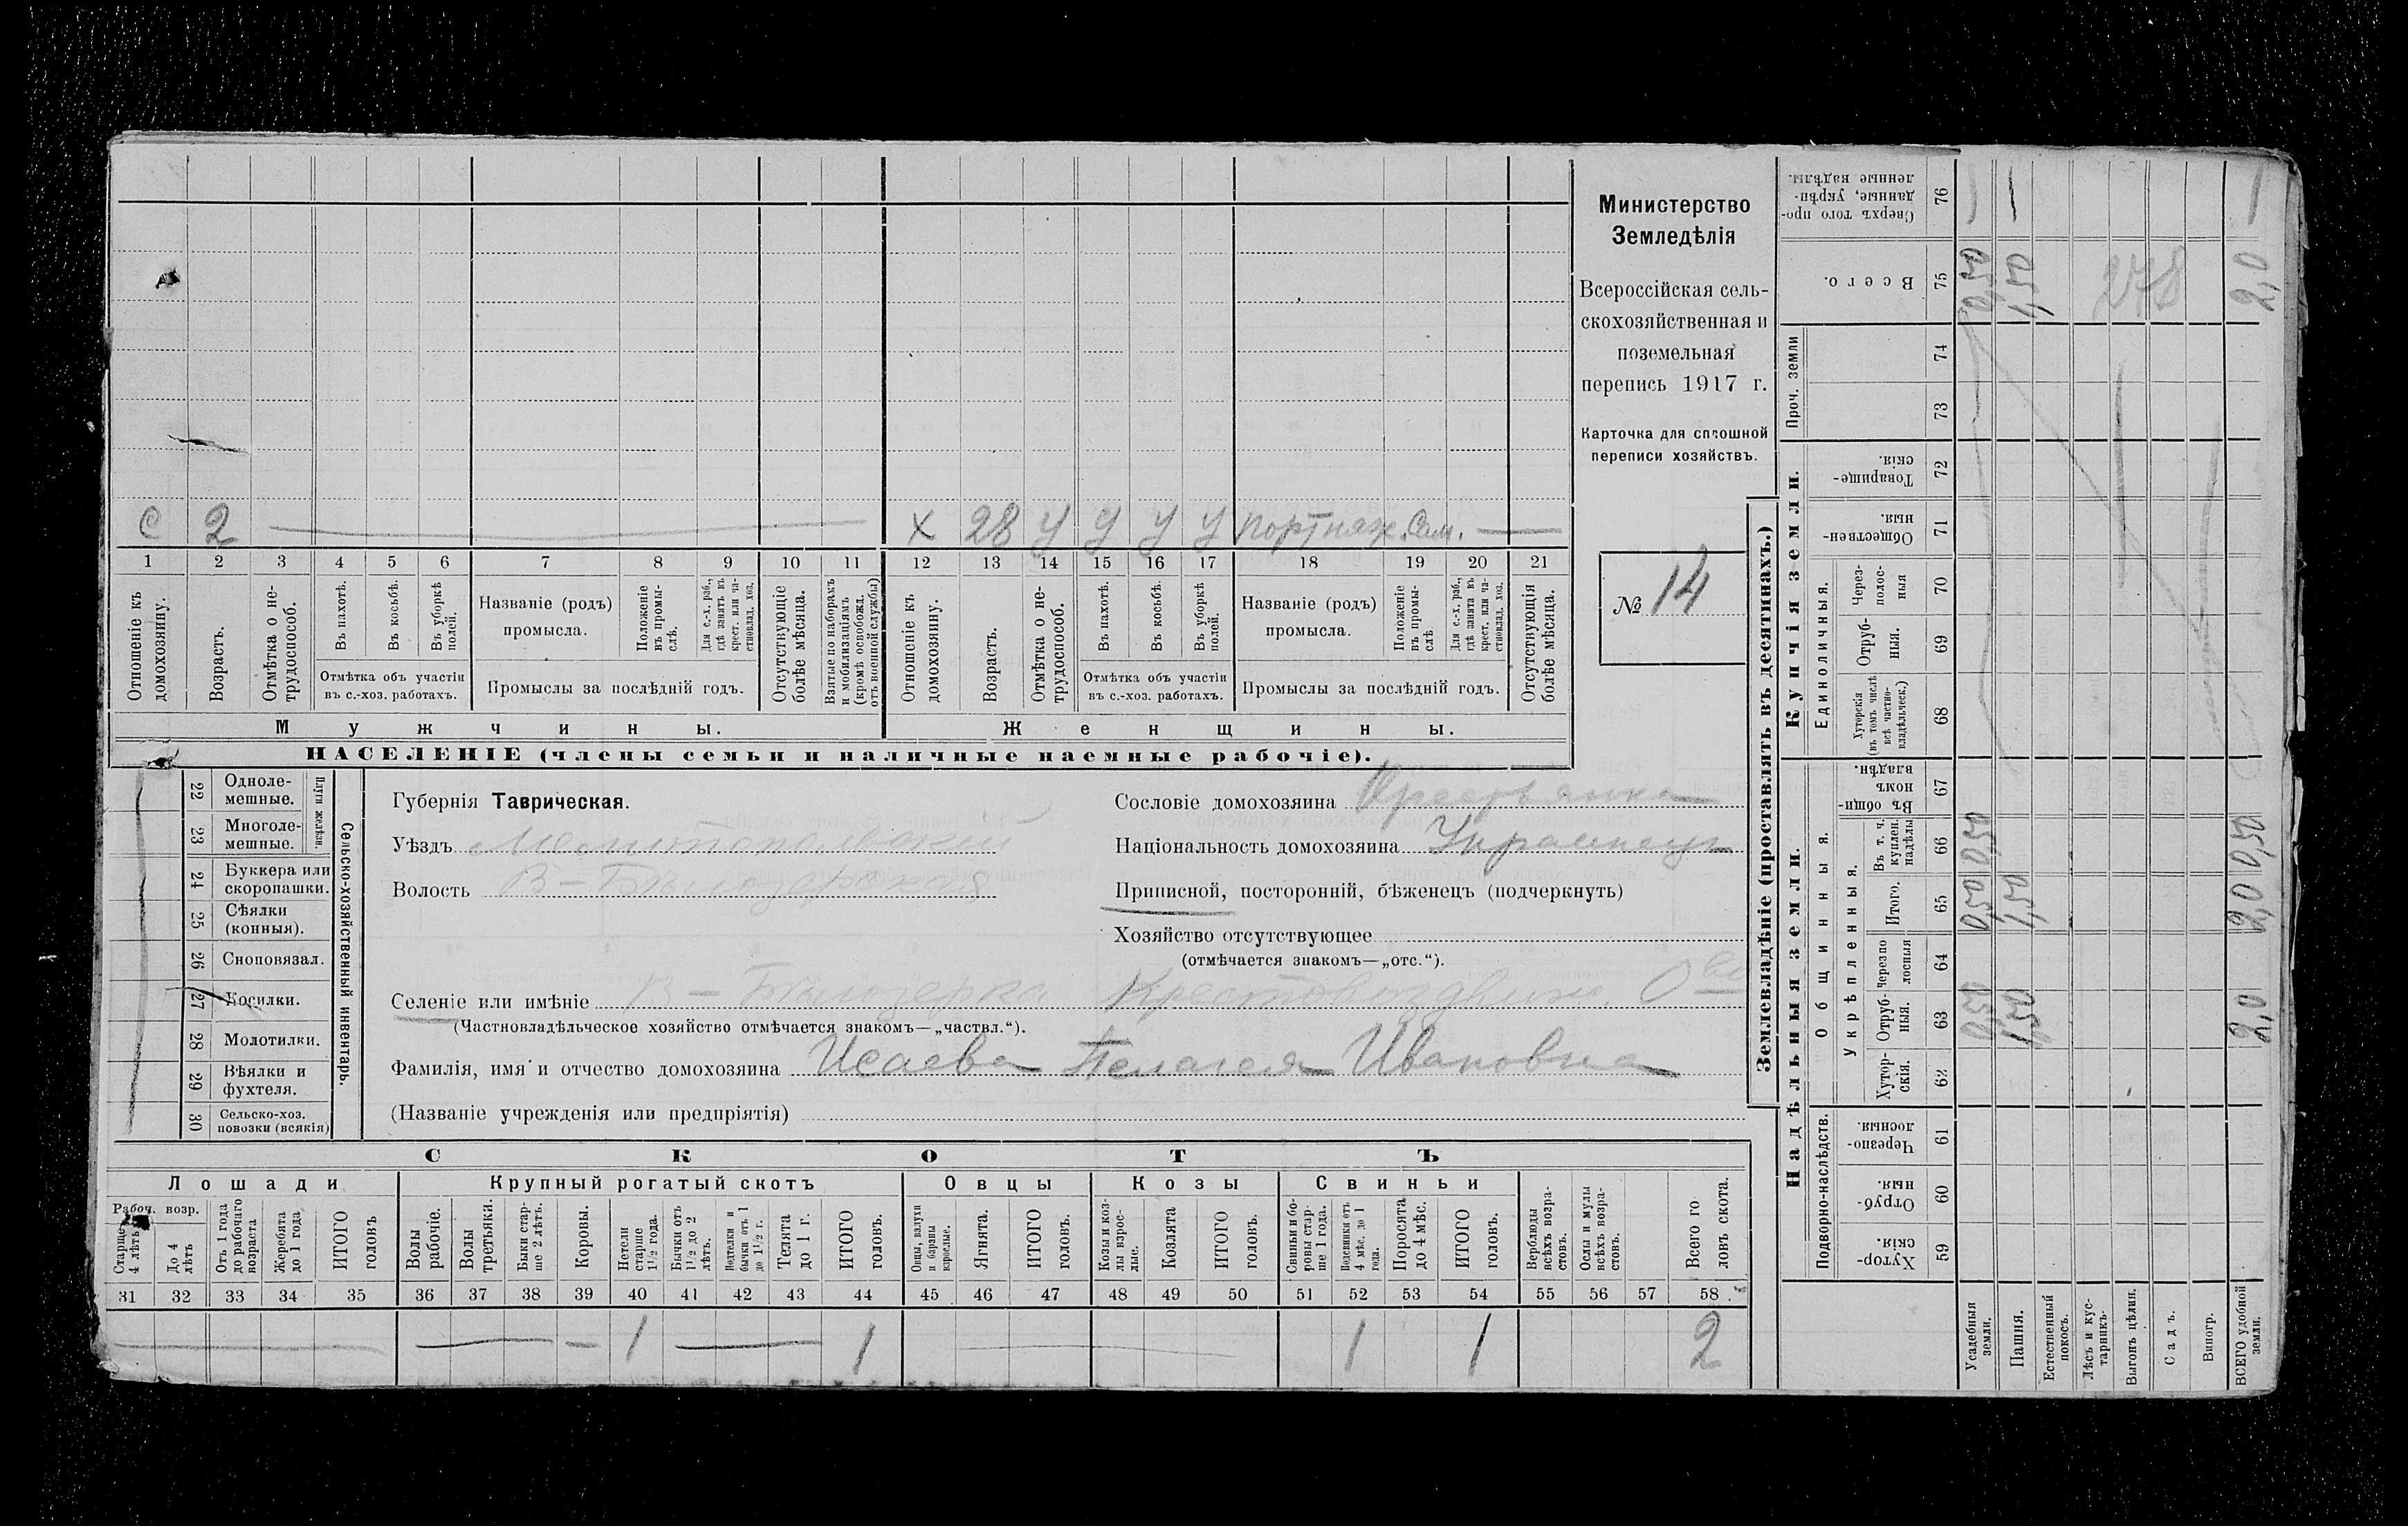 с 2 х 28 У У У У портняж. Сам.
1 2 3 4 5 6 7 8 9 10 11 12 13 14 15 16 17 18 19 20 21
Отношеніе къ домохозяину.
Возрастъ.
Отмѣтка о не-
трудоспособ.
Въ пахотѣ.
Въ косьбѣ.
Въ уборкѣ
полей.
Отмѣтка объ участіи
въ с.-хоз. работахъ.
Названіе (родъ)
промысла.
Положеніе
въ промы-
слѣ.
Для с.-х. раб.,
гдѣ занятъ въ
крест. или ча-
стновлад. хоз.
Промыслы за послѣдній годъ.
Отсутствующіе
болѣе мѣсяца.
Взятые по наборамъ
и мобилизаціямъ
(кромѣ освобожд.
отъ военной службы)
Отношеніе къ
домохозяину.
Возрастъ.
Отмѣтка о не-
трудоспособ.
Въ пахотѣ.
Въ косьбѣ.
Въ уборкѣ
полей.
Отмѣтка объ участіи
въ с.-хоз. работахъ.
Названіе (родъ)
промысла.
Положеніе
въ промы-
слѣ
Для с.-х. раб.,
гдѣ занята въ
крест. или ча-
стновлад. хоз.
Промыслы за послѣдній годъ.
Отсутствующія
болѣе мѣсяца.
Мужчины.
Женщины.
НАСЕЛЕНІЕ (члены семьи и наличные наемные рабочіе).
Министерство
Земледѣлія
Всероссійская сель-
скохозяйственная и
поземельная
перепись 1917 г.
Карточка для сплошной
переписи хозяйствъ.
№ 14
22 Одноле-
мешные.
23 Многоле-
мешные.
Плуги желѣзн.
24 Буккера или
скоропашки.
25 Сѣялки
(конныя).
26 Сноповязал.
27 Косилки.
28 Молотилки.
29 Вѣялки и
фухтеля.
30 Сельско-хоз.
повозки (всякія)
Сельско-хозяйственный инвентарь.
Губернія Таврическая.
Уѣздъ Мелитопольский
Волость В-Бѣлозерская
Селеніе или имѣніе В-Бѣлозерка Крестовоздвиж. О-во
(Частновладѣльческое хозяйство отмѣчается знакомъ—„частвл.“).
Фамилія, имя и отчество домохозяина Исаева Пелагея Ивановна
(Названіе учрежденія или предпріятія)
Сословіе домохозяина Крестьянка
Національность домохозяина Украинец
Приписной, посторонній, бѣженецъ (подчеркнуть)
Хозяйство отсутствующее
(отмѣчается знакомъ—„отс.“).
СКОТЪ
Лошади
Крупный рогатый скотъ
Овцы
Козы
Свиньи
Рабоч. возр.
Старше
4 лѣтъ
До 4
лѣтъ
Отъ 1 года
до рабочаго
возраста
Жеребята
до 1 года
ИТОГО
головъ
Волы
рабочіе.
Волы
третьяки.
Быки стар-
ше 2 лѣтъ.
Коровы.
Нетели
старше
1½ года.
Бычки отъ
1½ до 2
лѣтъ.
Подтелки и
бычки отъ 1
до 1½ г.
Телята
до 1 г.
ИТОГО
головъ.
Овцы, валухи
и бараны
взрослые.
Ягнята.
ИТОГО
головъ.
Козы и коз-
лы взрос-
лые.
Козлята
ИТОГО
головъ.
Свиньи и бо-
ровы стар-
ше 1 года.
Подсвинки отъ
4 мѣс. до 1
года.
Поросята
до 4 мѣс.
ИТОГО
головъ.
Верблюды
всѣхъ возра-
стовъ.
Ослы и мулы
всѣхъ возра-
стовъ.
Всего го
ловъ скота.
31 32 33 34 35 36 37 38 39 40 41 42 43 44 45 46 47 48 49 50 51 52 53 54 55 56 57 58
1 1 1 1 2
Землевладѣніе (проставлять въ десятинахъ.)
Надѣльныя земли.
Купчія земли.
Проч. земли
Подворно-наслѣдств.
Общинныя.
Укрѣпленныя.
Единоличныя.
Сверхъ того про-
данные, укрѣп-
ленные надѣлы.
76
Всего.
75
74
73
Товарище-
скія.
72
Обществен-
ныя.
71
Через-
полос-
ныя
70
Отруб-
ныя.
69
Хуторскія
(въ томъ числѣ
всѣ частно-
владѣльческ.)
68
Въ общин-
номъ
владѣн.
67
Въ т. ч.
куплен.
надѣлы
66
Итого.
65
Черезпо
лосныя
64
Отруб-
ныя.
63
Хутор-
скія.
62
Черезпо-
лосныя.
61
Отруб-
ныя.
60
Хутор-
скія.
59
Усадебныя
земли.
0,50 0,50 0,50 0,50
Пашня.
1,50 1,50 1,50
Естественный
покосъ.
Лѣсъ и кус-
тарникъ.
Выгонъ цѣлин.
Садъ.
278
Виногр.
ВСЕГО удобной
земли.
2,0 2,0 0,50 2,0